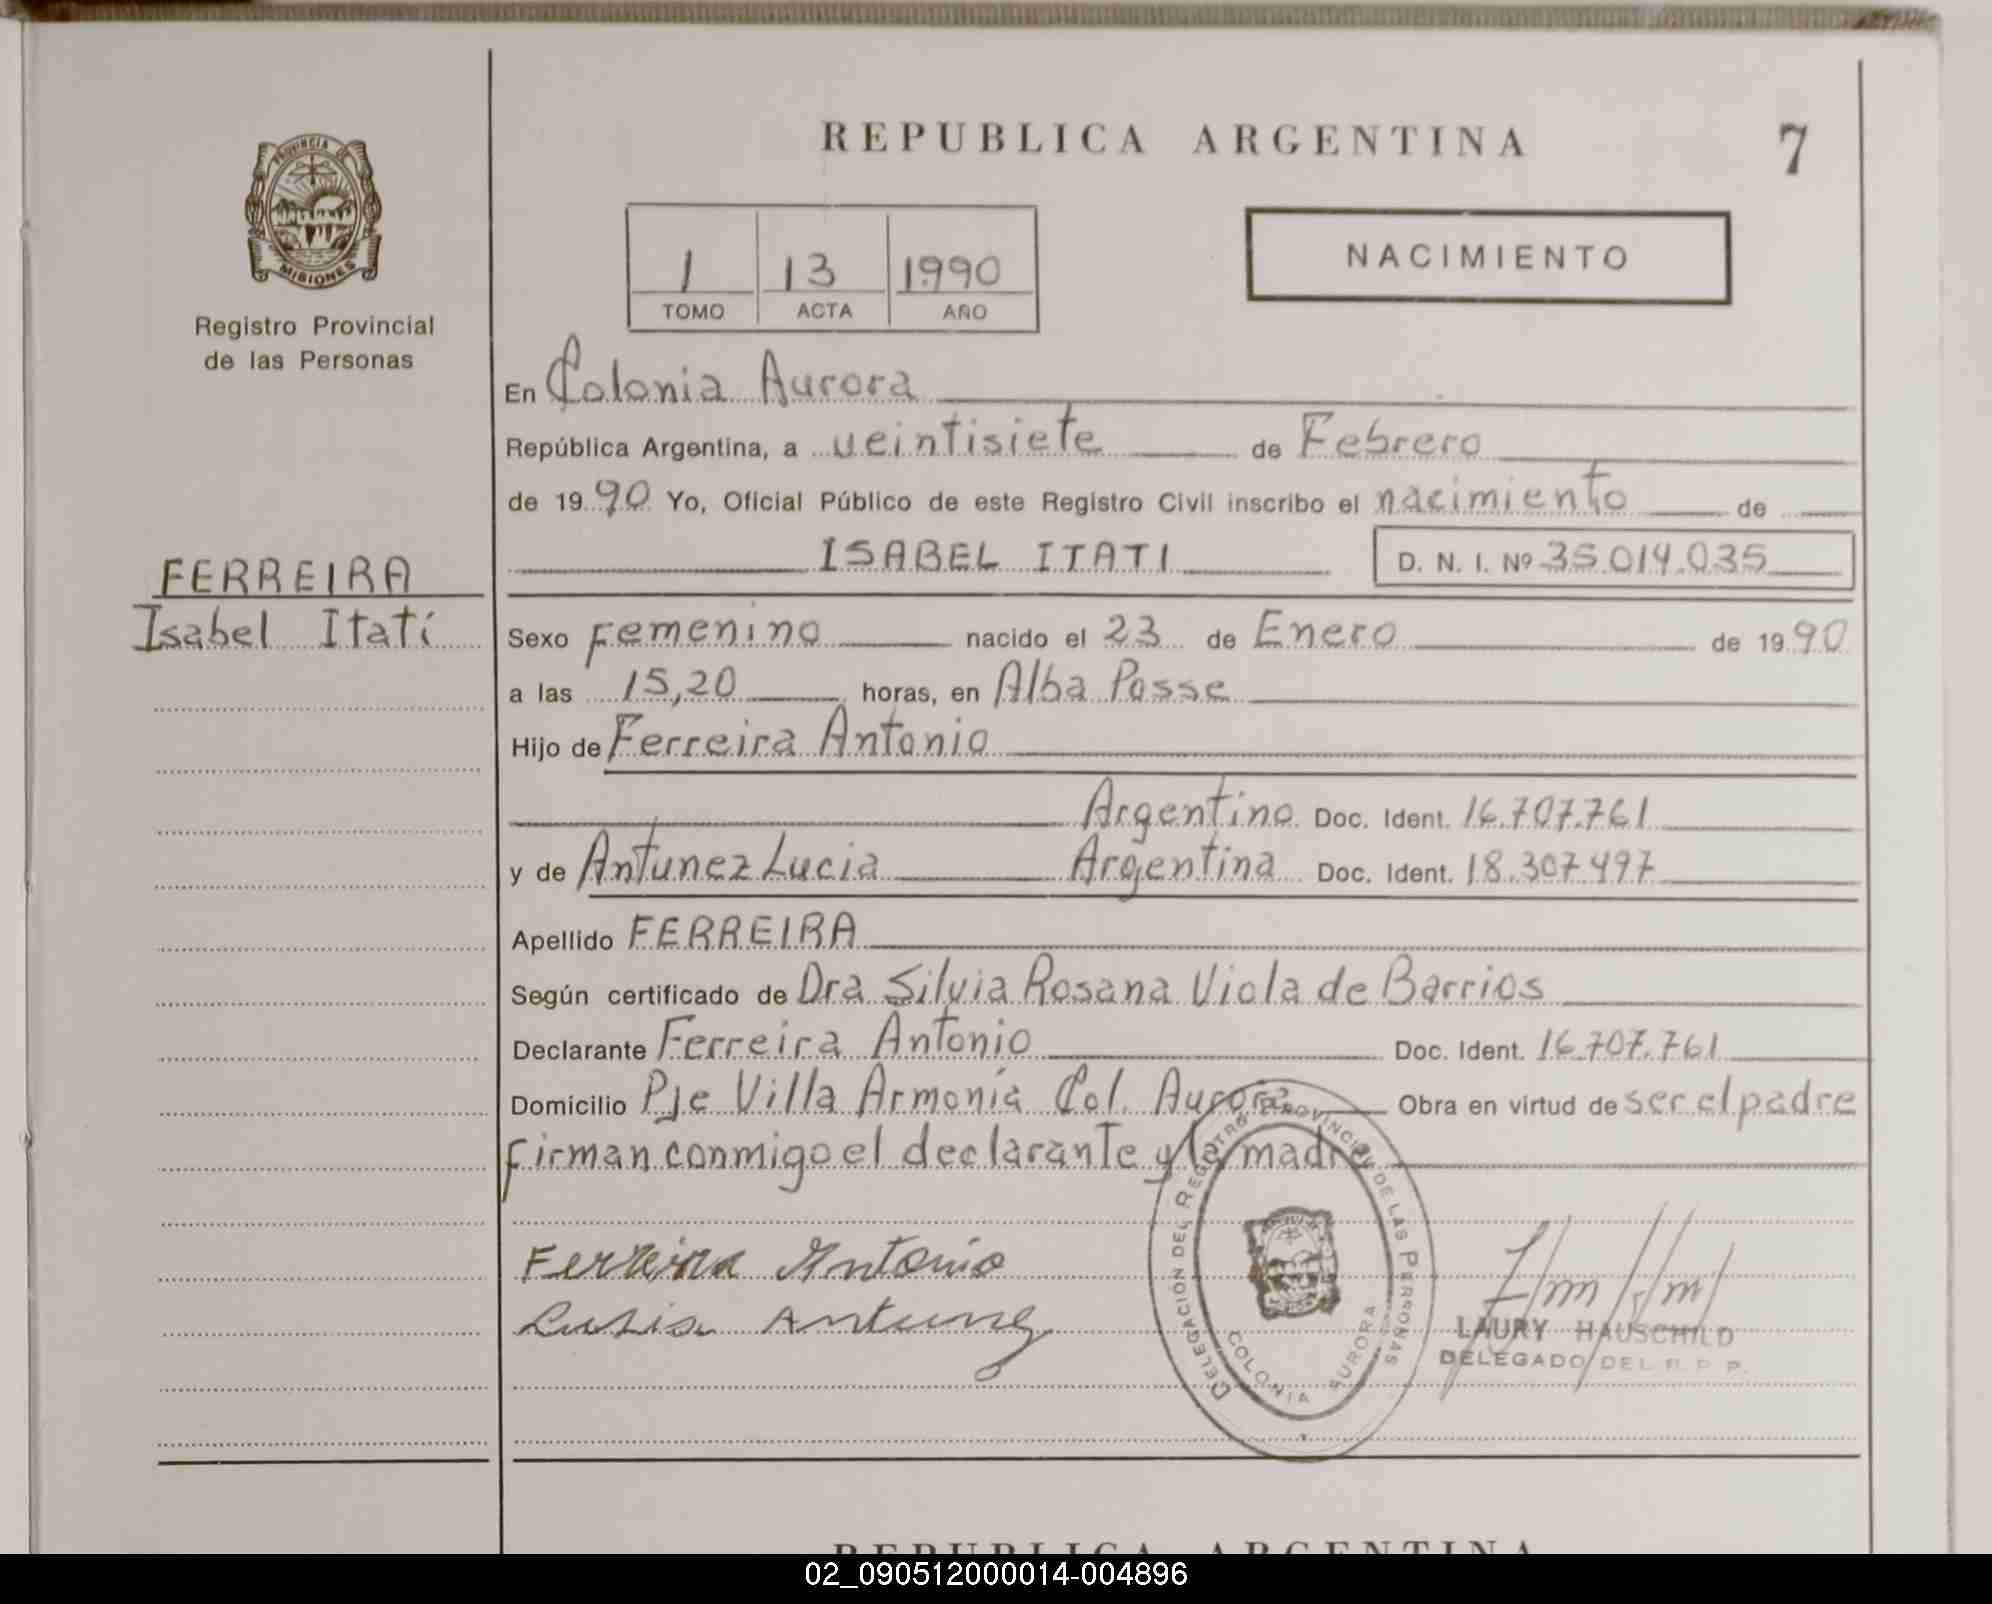 REPUBLICA ARGENTINA
7
PROVINCIA DE
MISIONES
Registro Provincial
de las Personas
1 13 1990
TOMO ACTA AÑO
NACIMIENTO
En Colonia Aurora
República Argentina, a veintisiete de Febrero
de 1990 Yo, Oficial Público de este Registro Civil inscribo el nacimiento de
ISABEL ITATI D. N. I. Nº 35.014.035
FERREIRA
Isabel Itatí
Sexo Femenino nacido el 23 de Enero de 1990
a las 15,20 horas, en Alba Posse
Hijo de Ferreira Antonio
Argentino Doc. Ident. 16.707.761
y de Antunez Lucia Argentina Doc. Ident. 18.307.497
Apellido FERREIRA
Según certificado de Dra Silvia Rosana Viola de Barrios
Declarante Ferreira Antonio Doc. Ident. 16.707.761
Domicilio Pje Villa Armonía Col. Aurora Obra en virtud de ser el padre
firman conmigo el declarante y la madre
Ferreira Antonio
DELEGACIÓN DEL REGISTRO PROVINCIAL DE LAS PERSONAS
COLONIA AURORA
LAURY HAUSCHILD
DELEGADO DEL R. P. P.
REPUBLICA ARGENTINA
02_090512000014-004896